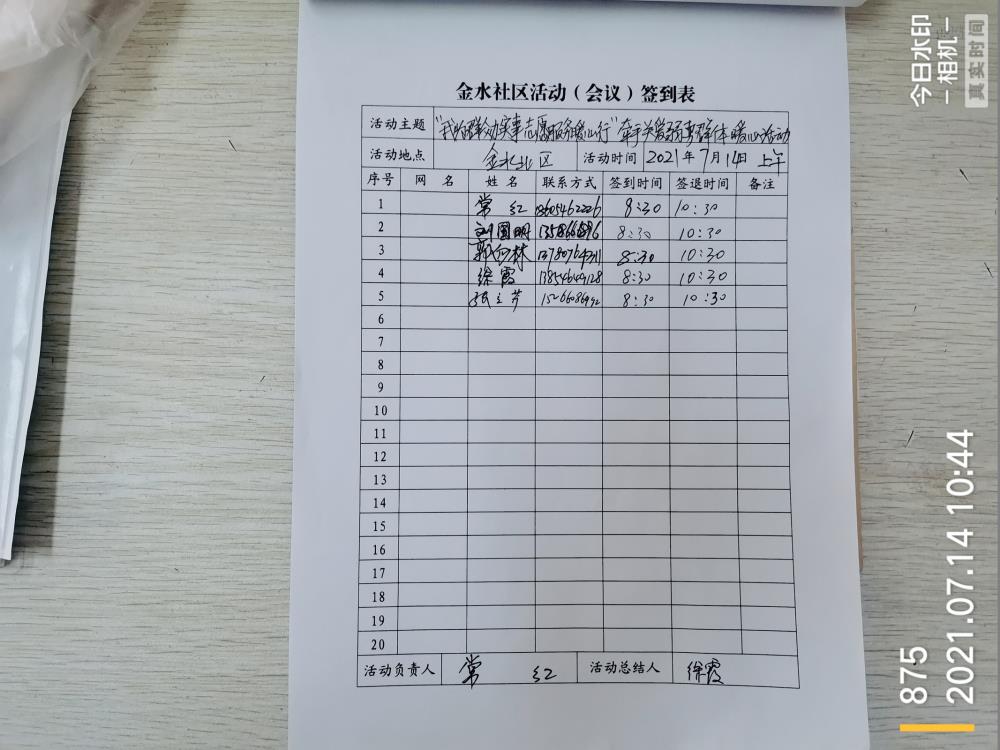 金水社区活动（会议）签到表
活动主题 "我为群众办实事志愿服务暖心行"牵手关爱弱势群体暖心活动
活动地点 金水北区 活动时间 2021年7月14日 上午
序号 网 名 姓 名 联系方式 签到时间 签退时间 备注
1 常 红 8:30 10:30
2 刘国明 8:30 10:30
3 林 8:30 10:30
4 徐霞 8:30 10:30
5 张立芳 8:30 10:30
6
7
8
9
10
11
12
13
14
15
16
17
18
19
20
活动负责人 常 红 活动总结人 徐霞
今日水印
相机
真实时间
875
2021.07.14 10:44